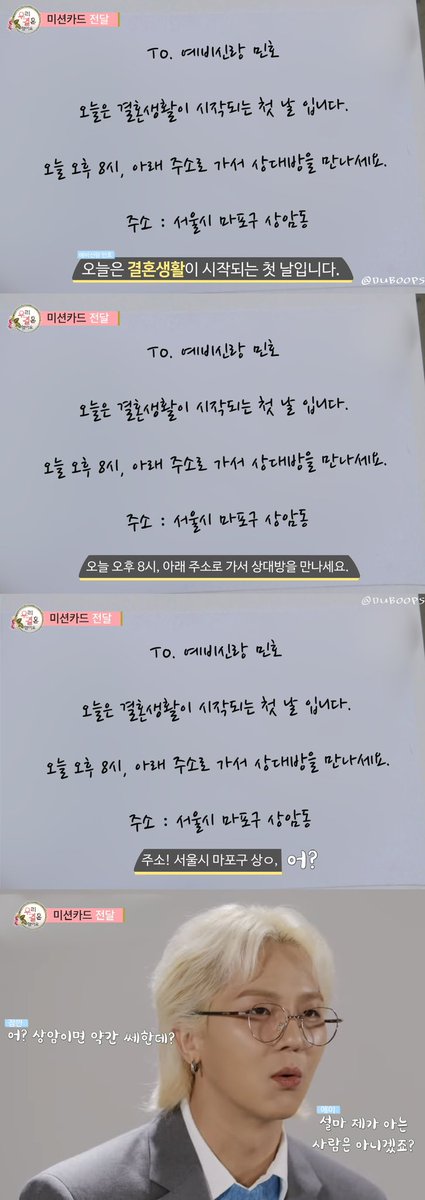 우리 결혼 했어요
미션카드 전달
TO. 예비신랑 민호
오늘은 결혼생활이 시작되는 첫 날 입니다.
오늘 오후 8시, 아래 주소로 가서 상대방을 만나세요.
주소 : 서울시 마포구 상암동
예비신랑 민호
오늘은 결혼생활이 시작되는 첫 날입니다.
@DUBOOPS
우리 결혼 했어요
미션카드 전달
TO. 예비신랑 민호
오늘은 결혼생활이 시작되는 첫 날 입니다.
오늘 오후 8시, 아래 주소로 가서 상대방을 만나세요.
주소 : 서울시 마포구 상암동
오늘 오후 8시, 아래 주소로 가서 상대방을 만나세요.
@DUBOOPS
우리 결혼 했어요
미션카드 전달
TO. 예비신랑 민호
오늘은 결혼생활이 시작되는 첫 날 입니다.
오늘 오후 8시, 아래 주소로 가서 상대방을 만나세요.
주소 : 서울시 마포구 상암동
주소! 서울시 마포구 상ㅇ, 어?
우리 결혼 했어요
미션카드 전달
잠깐
어? 상암이면 약간 쎄한데?
에이
설마 제가 아는
사람은 아니겠죠?